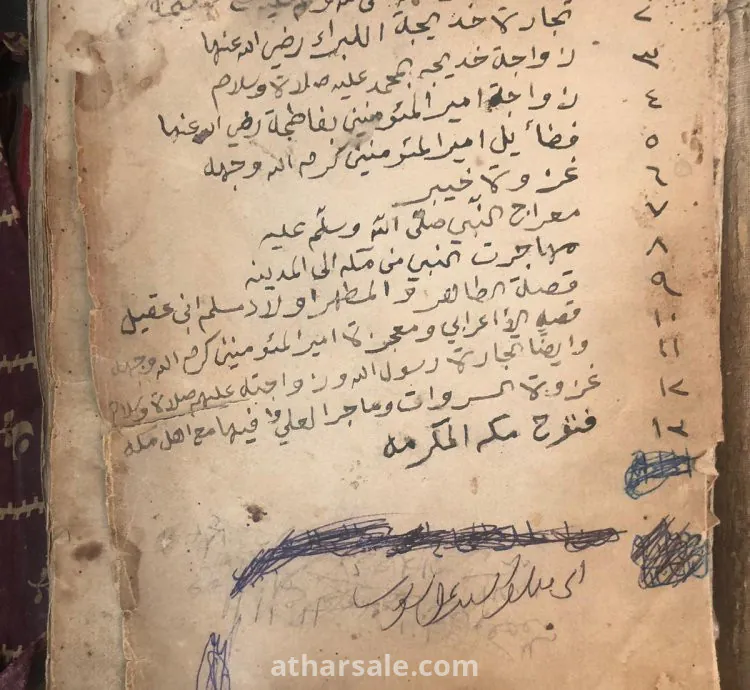 ٢ تجارة خديجة اللبراء رضي الله عنها
٣ زواجة خديجه بمحمد عليه صلاة وسلام
٤ زواجة امير المئومنين بفاطمة رضي الله عنها
٥ فضأيل امير المئومنين كرم الله وجهه
٦ غزوة خيبر
٧ معراج النبي صلى الله وسلم عليه
٨ مهاجرت النبي من مكه الى المدينه
٩ قصلة الطاهر و المطهر اولاد مسلم ابن عقيل
١٠ قصه الأاعرابي ومعجزة امير المئومنين كرم الله وجهه
١١ وايضا تجارة رسول الله وزواجته عليهم صلاة وسلام
١٢ غزوة السروات وماجر العلي فيها مع اهل مكه
١٣ فتوح مكه المكرمه
atharsale.com